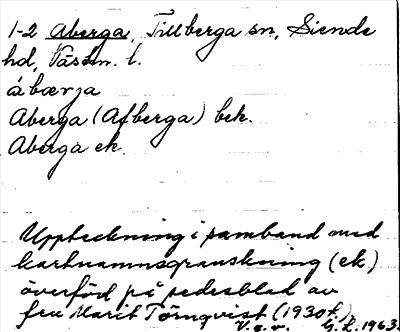 1-2 Aberga, Tillberga sn, Siende
hd, Västm. l.
ábærja
Aberga (Afberga) bek.
Aberga ek.
Uppteckning i samband med
kartnamnsgranskning (ek)
överförd på sedesblad av
fru Marit Törnqvist (1930 f.)
V.e.v. G.L. 1963.